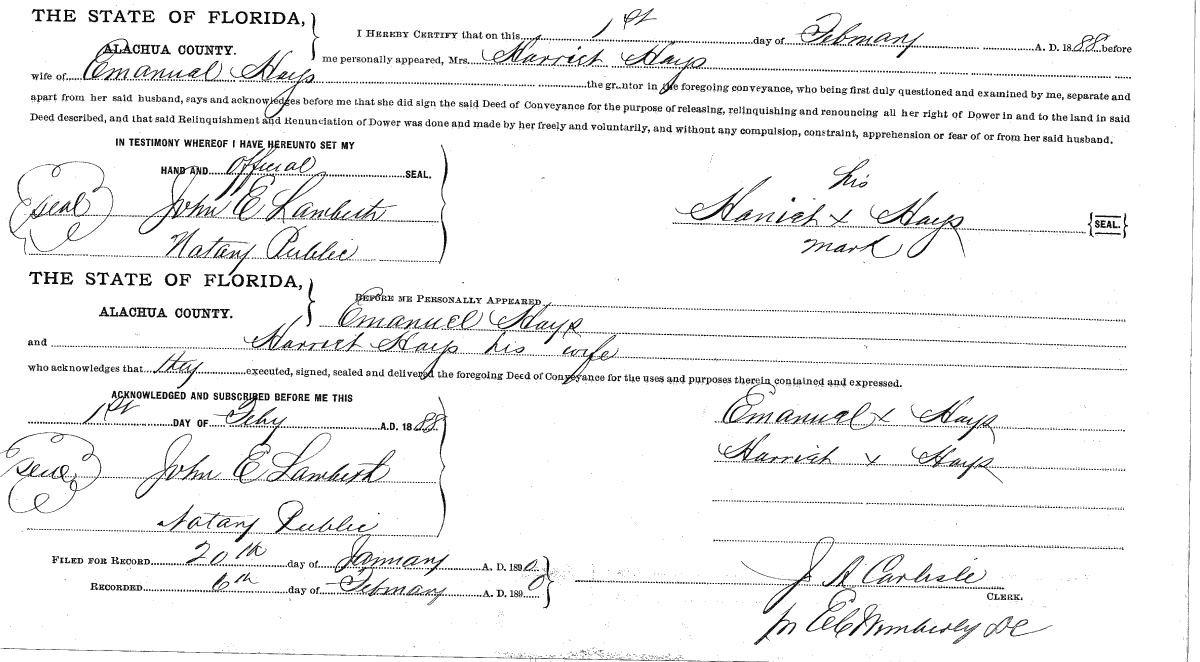 THE STATE OF FLORIDA,
ALACHUA COUNTY.
I HEREBY CERTIFY that on this 1st day of February A. D. 1888 before
me personally appeared, Mrs. Harriet Hays
wife of Emanual Hays the grantor in the foregoing conveyance, who being first duly questioned and examined by me, separate and
apart from her said husband, says and acknowledges before me that she did sign the said Deed of Conveyance for the purpose of releasing, relinquishing and renouncing all her right of Dower in and to the land in said
Deed described, and that said Relinquishment and Renunciation of Dower was done and made by her freely and voluntarily, and without any compulsion, constraint, apprehension or fear of or from her said husband.
IN TESTIMONY WHEREOF I HAVE HEREUNTO SET MY
HAND AND official SEAL.
seal John E Lambeth
Notary Public
his
Harriet x Hays {SEAL.}
mark
THE STATE OF FLORIDA,
ALACHUA COUNTY.
BEFORE ME PERSONALLY APPEARED
Emanuel Hays
and Harriet Hays his wife
who acknowledges that they executed, signed, sealed and delivered the foregoing Deed of Conveyance for the uses and purposes therein contained and expressed.
ACKNOWLEDGED AND SUBSCRIBED BEFORE ME THIS
1st DAY OF Feby A.D. 1888
seal John E Lambeth
Notary Public
Emanual x Hays
Harriet x Hays
FILED FOR RECORD 20th day of January A. D. 1890
RECORDED 6th day of February A. D. 1890
J A Carlisle
CLERK.
pr E C Wimberly DC